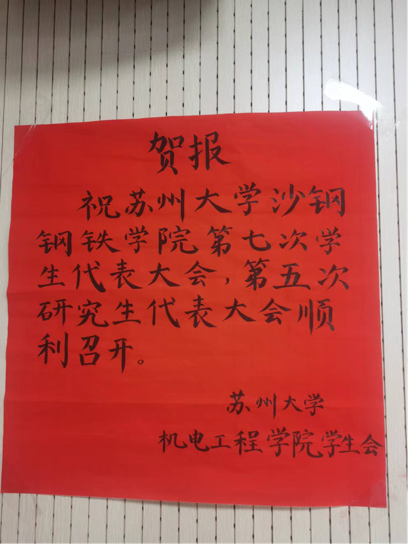 贺报
祝苏州大学沙钢
钢铁学院第七次学
生代表大会,第五次
研究生代表大会顺
利召开。
苏州大学
机电工程学院学生会